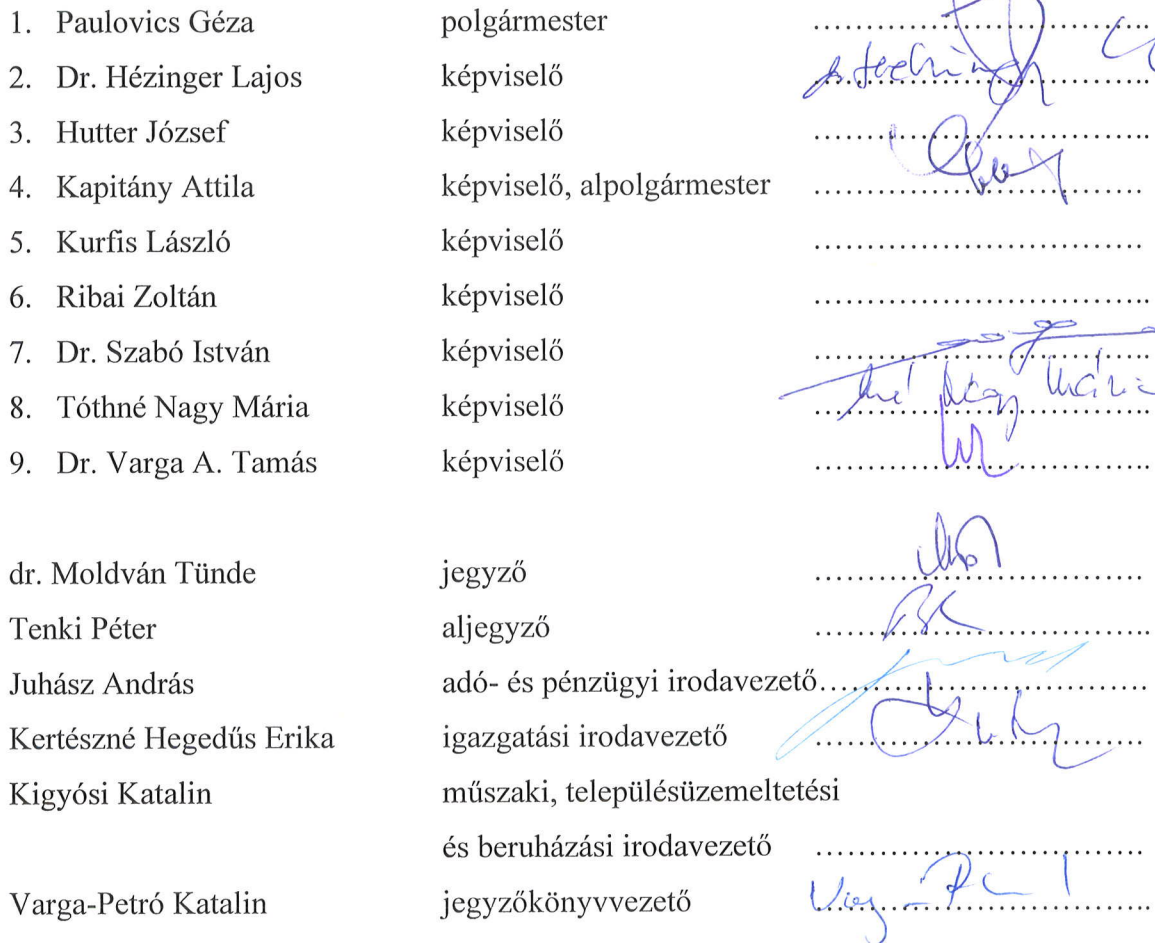 1. Paulovics Géza polgármester ..............................
2. Dr. Hézinger Lajos képviselő ..............................
3. Hutter József képviselő ..............................
4. Kapitány Attila képviselő, alpolgármester ..............................
5. Kurfis László képviselő ..............................
6. Ribai Zoltán képviselő ..............................
7. Dr. Szabó István képviselő ..............................
8. Tóthné Nagy Mária képviselő .............................. Nagy Mária
9. Dr. Varga A. Tamás képviselő ..............................
dr. Moldván Tünde jegyző ..............................
Tenki Péter aljegyző ..............................
Juhász András adó- és pénzügyi irodavezető..............................
Kertészné Hegedűs Erika igazgatási irodavezető ..............................
Kigyósi Katalin műszaki, településüzemeltetési
és beruházási irodavezető ..............................
Varga-Petró Katalin jegyzőkönyvvezető ..............................